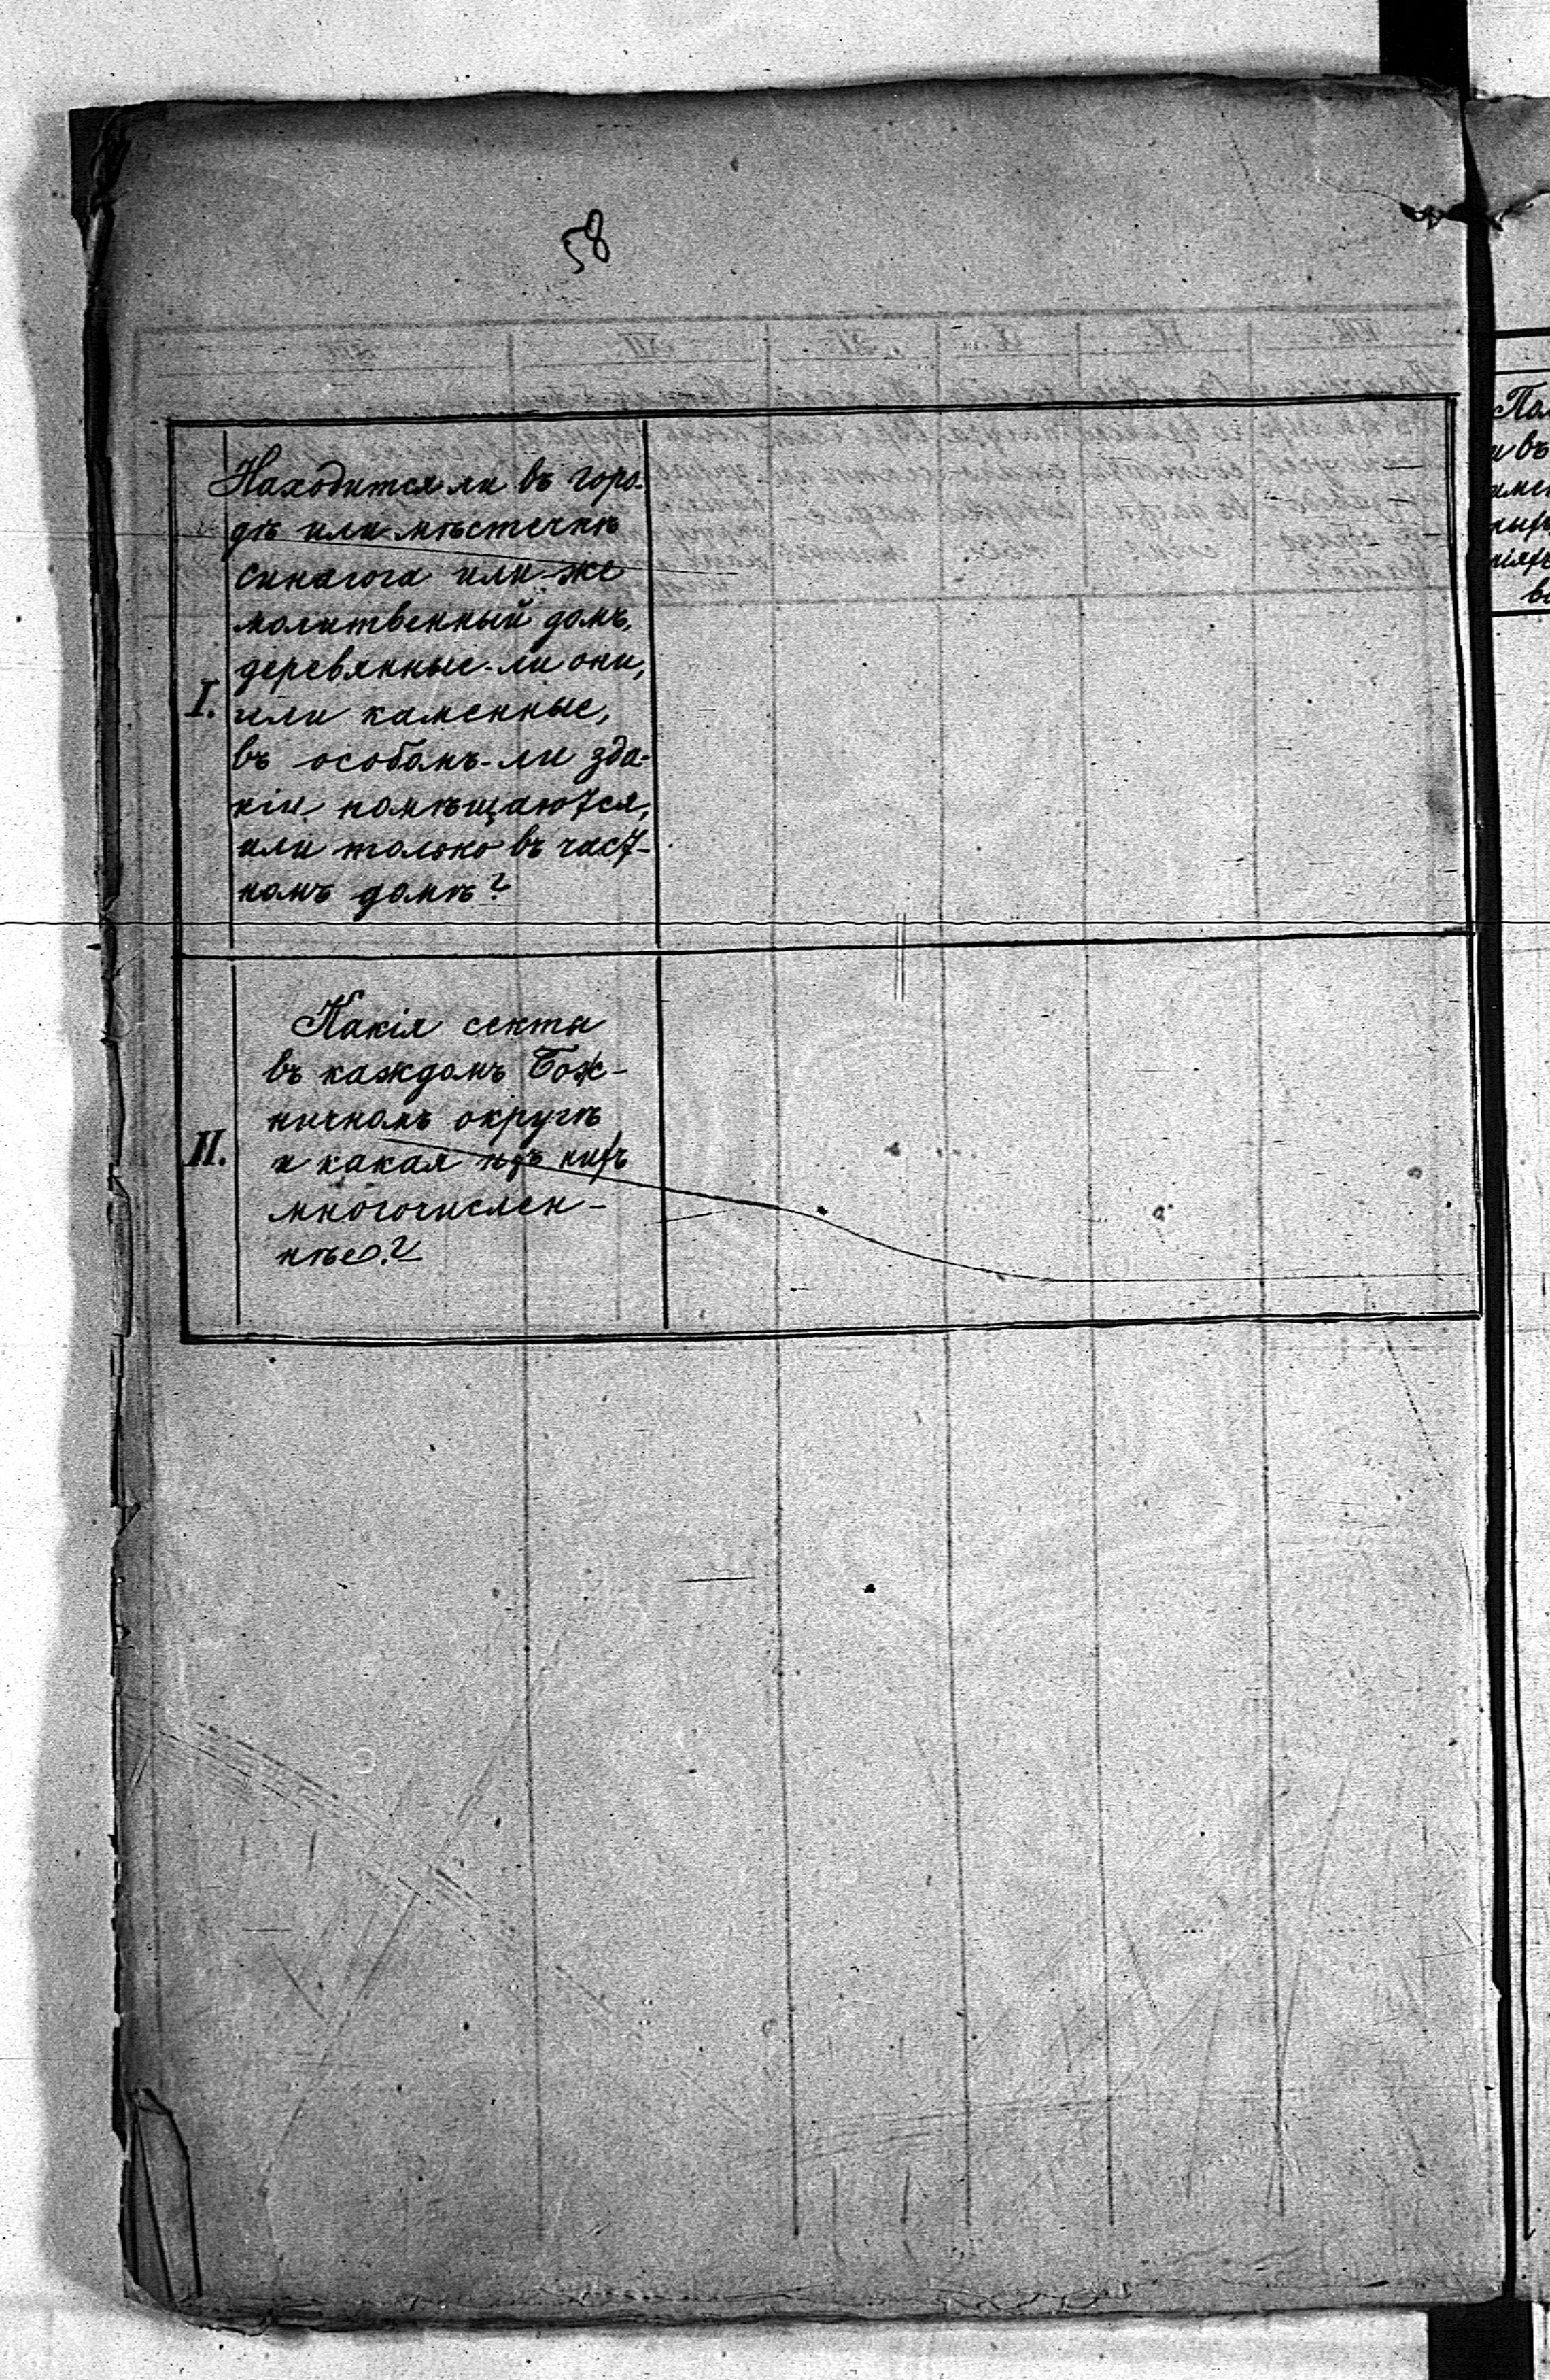 58
Находится ли въ горо-
дѣ или мѣстечкѣ
синагога или-же
молитвенный домъ,
деревянные-ли они,
I. или каменные,
въ особомъ-ли зда-
нiи помѣщаются,
или только въ част-
номъ домѣ?
Какiя секты
въ каждомъ Бож-
ничномъ округѣ
II. и какая изъ нихъ
многочислен-
нѣе?